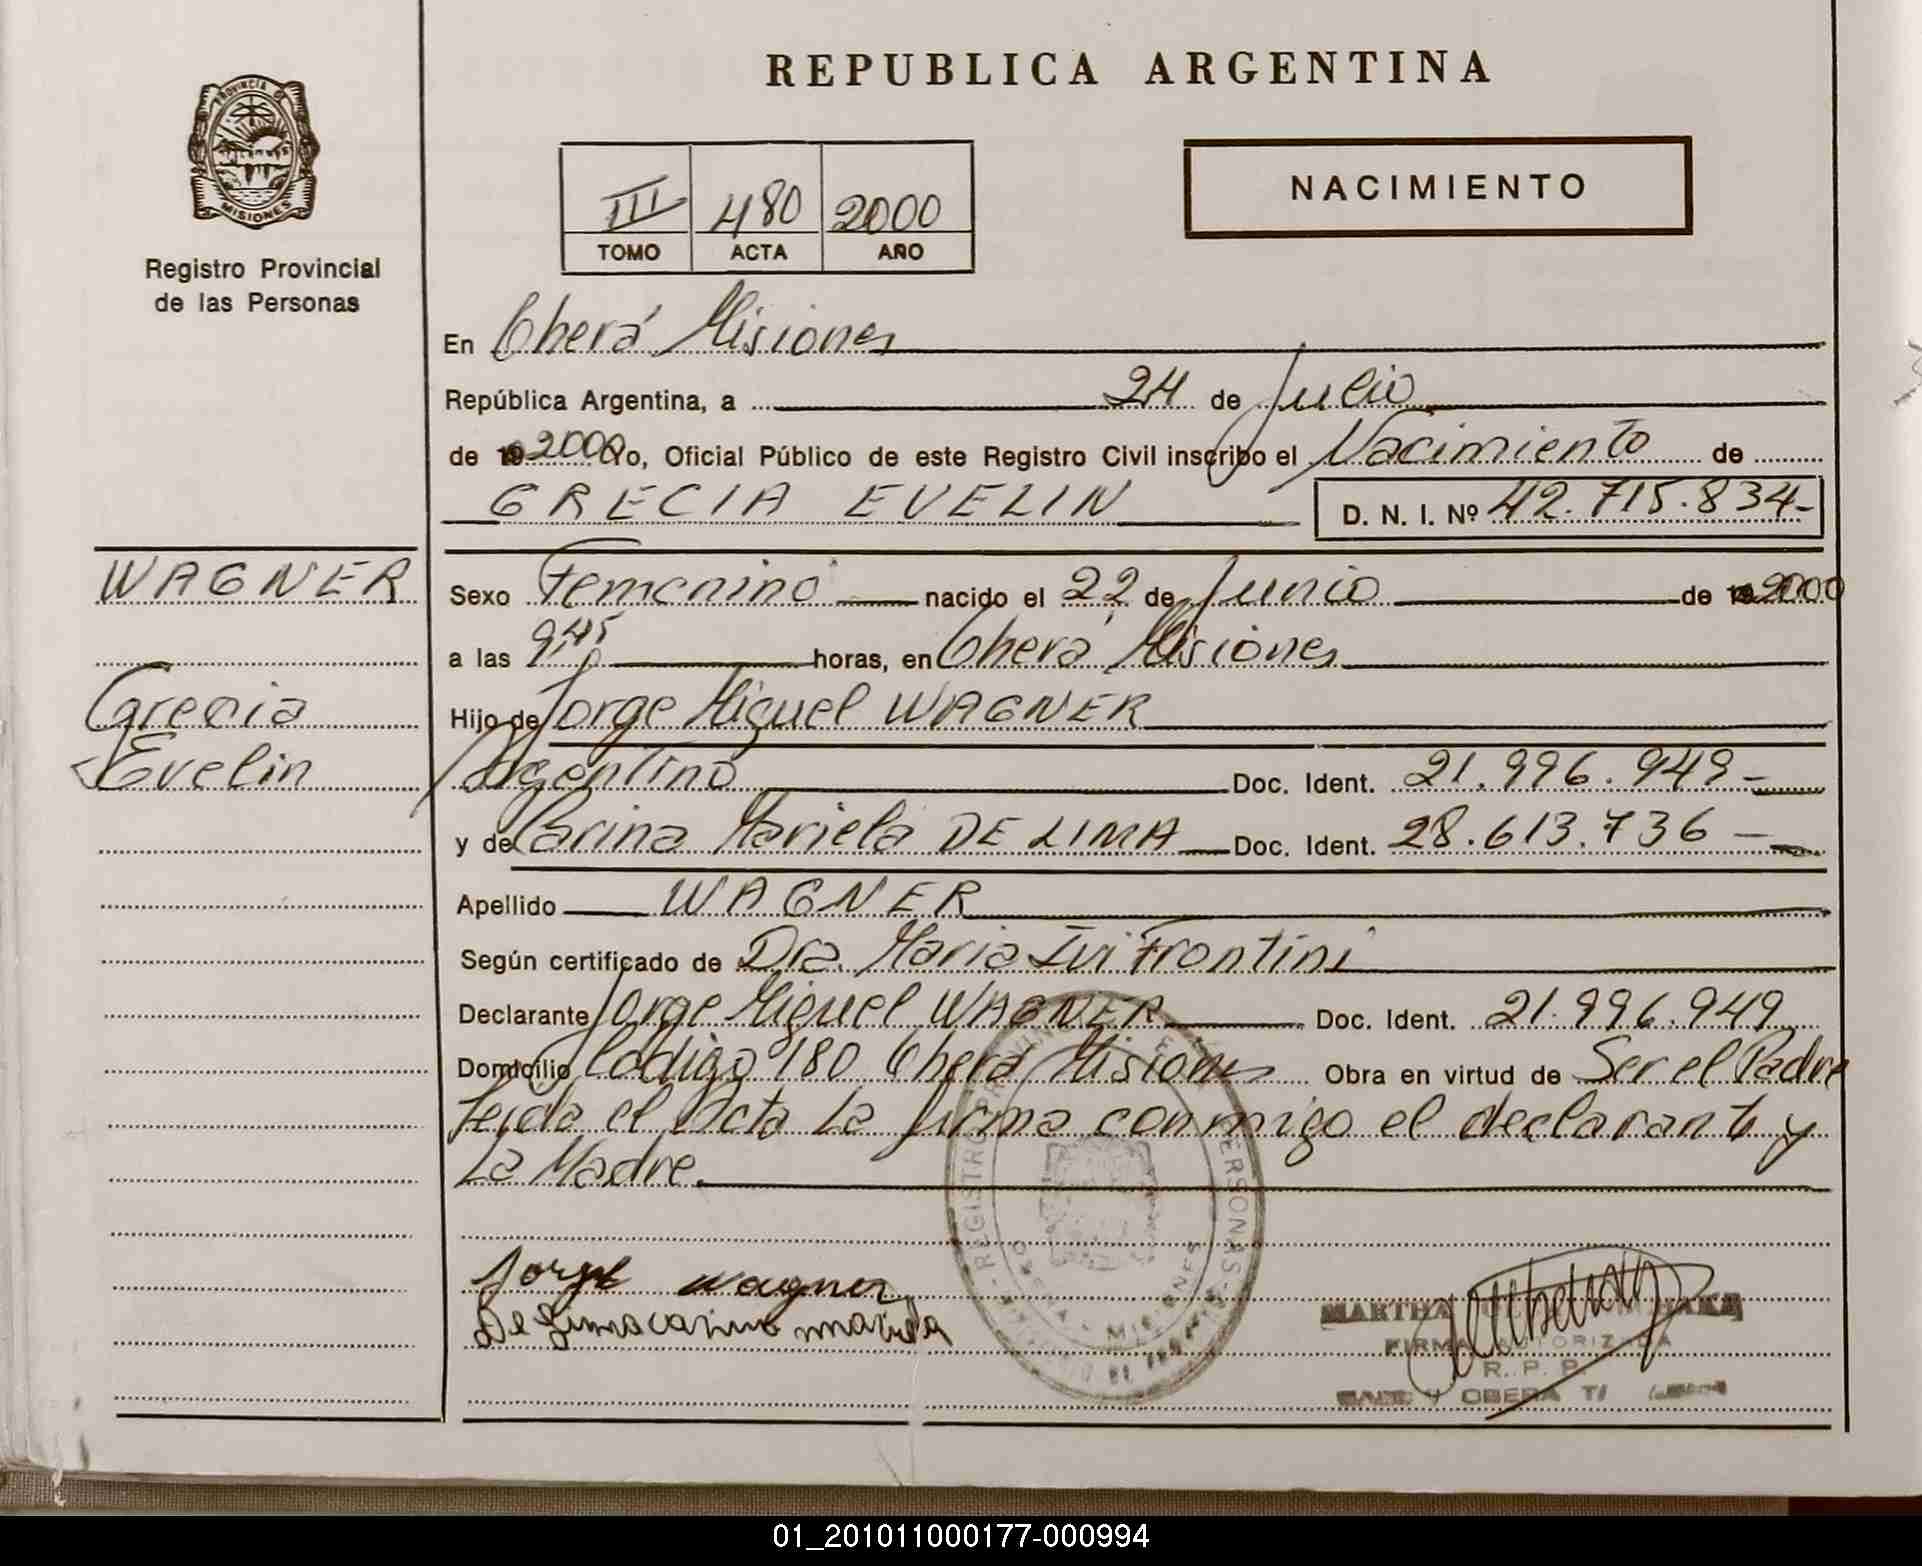 REPUBLICA ARGENTINA
PROVINCIA DE
MISIONES
Registro Provincial
de las Personas
III 480 2000
TOMO ACTA AÑO
NACIMIENTO
En Oberá Misiones
República Argentina, a 24 de Julio
de 19 2000 Yo, Oficial Público de este Registro Civil inscribo el Nacimiento de
GRECIA EVELIN D. N. I. Nº 42.715.834-
WAGNER
Grecia
Evelin
Sexo Femenino nacido el 22 de Junio de 19 2000
a las 9,45 horas, en Oberá Misiones
Hijo de Jorge Miguel WAGNER
Argentino Doc. Ident. 21.996.949-
y de Carina Mariela DE LIMA Doc. Ident. 28.613.736-
Apellido WAGNER
Según certificado de Dra. Maria Frontini
Declarante Jorge Miguel WAGNER Doc. Ident. 21.996.949
Domicilio Codigo 180 Oberá Misiones Obra en virtud de Ser el Padre
Leida el Acta La firma conmigo el declarante y
La Madre.
Jorge Wagner
De Lima carina mariela
REGISTRO PROVINCIAL DE LAS PERSONAS
OBERA - MISIONES
MARTHA
FIRMA AUTORIZADA
R. P. P.
OBERA
01_201011000177-000994